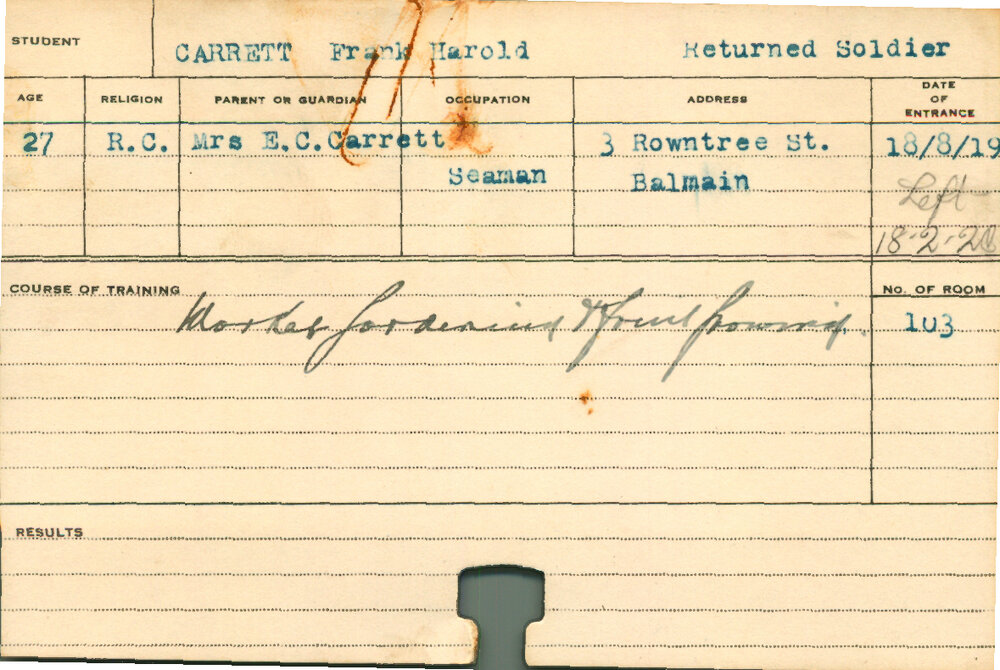 STUDENT CARRETT Frank Harold Returned Soldier
AGE RELIGION PARENT OR GUARDIAN OCCUPATION ADDRESS DATE OF ENTRANCE
27 R.C. Mrs E.C.Carrett 3 Rowntree St. 18/8/19
Seaman Balmain Left
18-2-20
COURSE OF TRAINING Market Gardening & Fruit Growing. No. OF ROOM
103
RESULTS